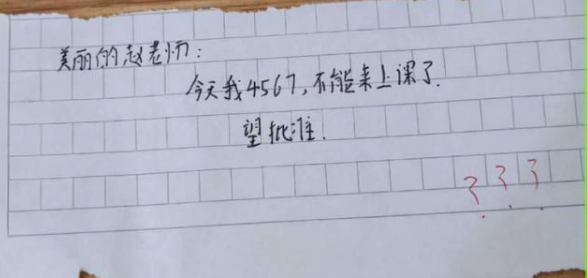 美丽的赵老师:
今天我4567,不能来上课了.
望批准.
???